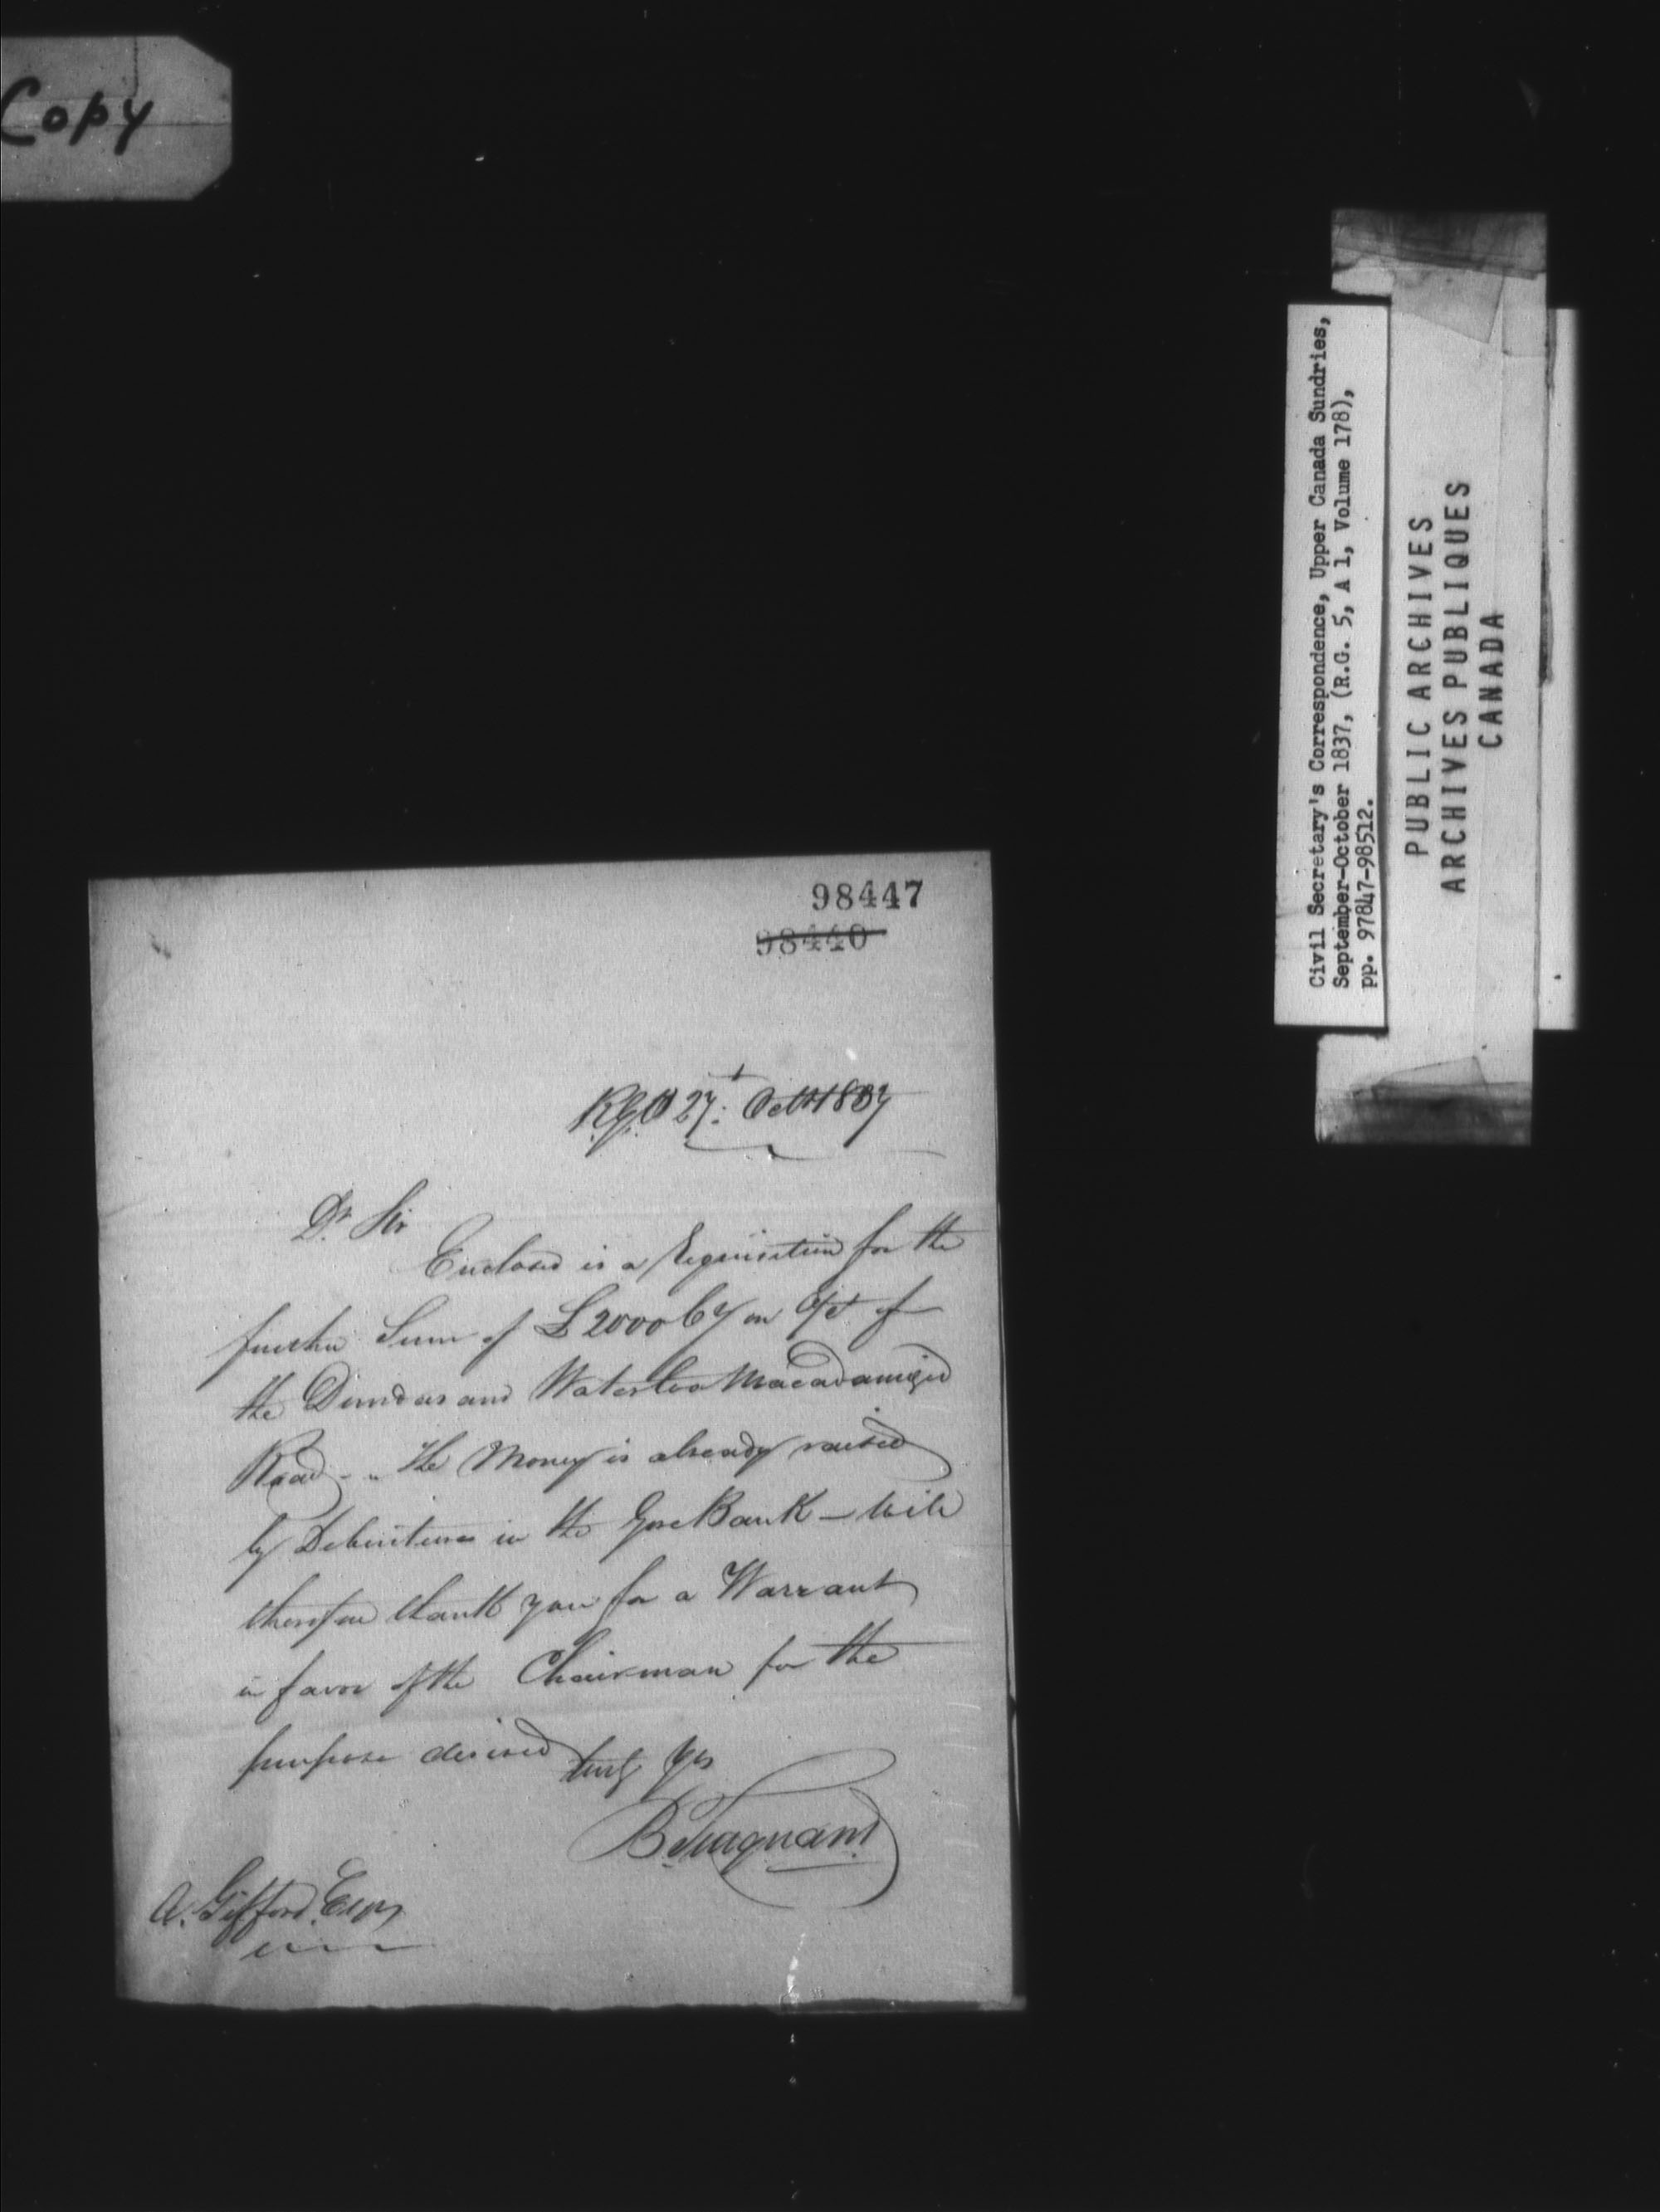 Copy
98447
98440
R.G.O 27: Octr 1837
Dr Sir
Enclosed is a Requisition for the
further Sum of £2000 Cy on a/ct of
the Dundas and Waterloo Macadamized
Road - " The Money is already raised
by Debentures in the Gore Bank — Will
therefore thank you for a Warrant
in favor of the Chairman for the
purpose desired
truly Yrs
B. Turquand
A. Gifford. Esqr
Civil Secretary's Correspondence, Upper Canada Sundries,
September-October 1837, (R.G. 5, A 1, Volume 178),
pp. 97847-98512.
PUBLIC ARCHIVES
ARCHIVES PUBLIQUES
CANADA